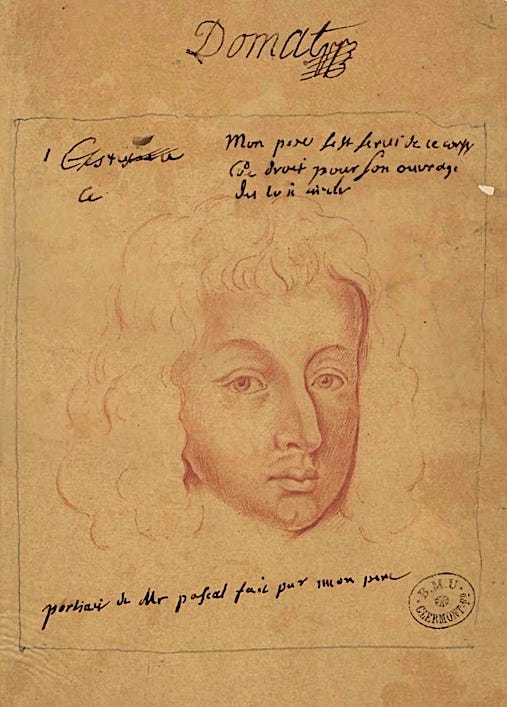 Domat
1
Mon pere s'est servi de ce corps
de droit pour son ouvrage
des loix civiles
Ce
portrait de Mr pascal fait par mon pere
B.M.U.
CLERMONT-FD